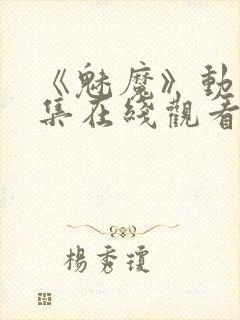 《魅魔》動
集在綫觀看
楊秀瓊